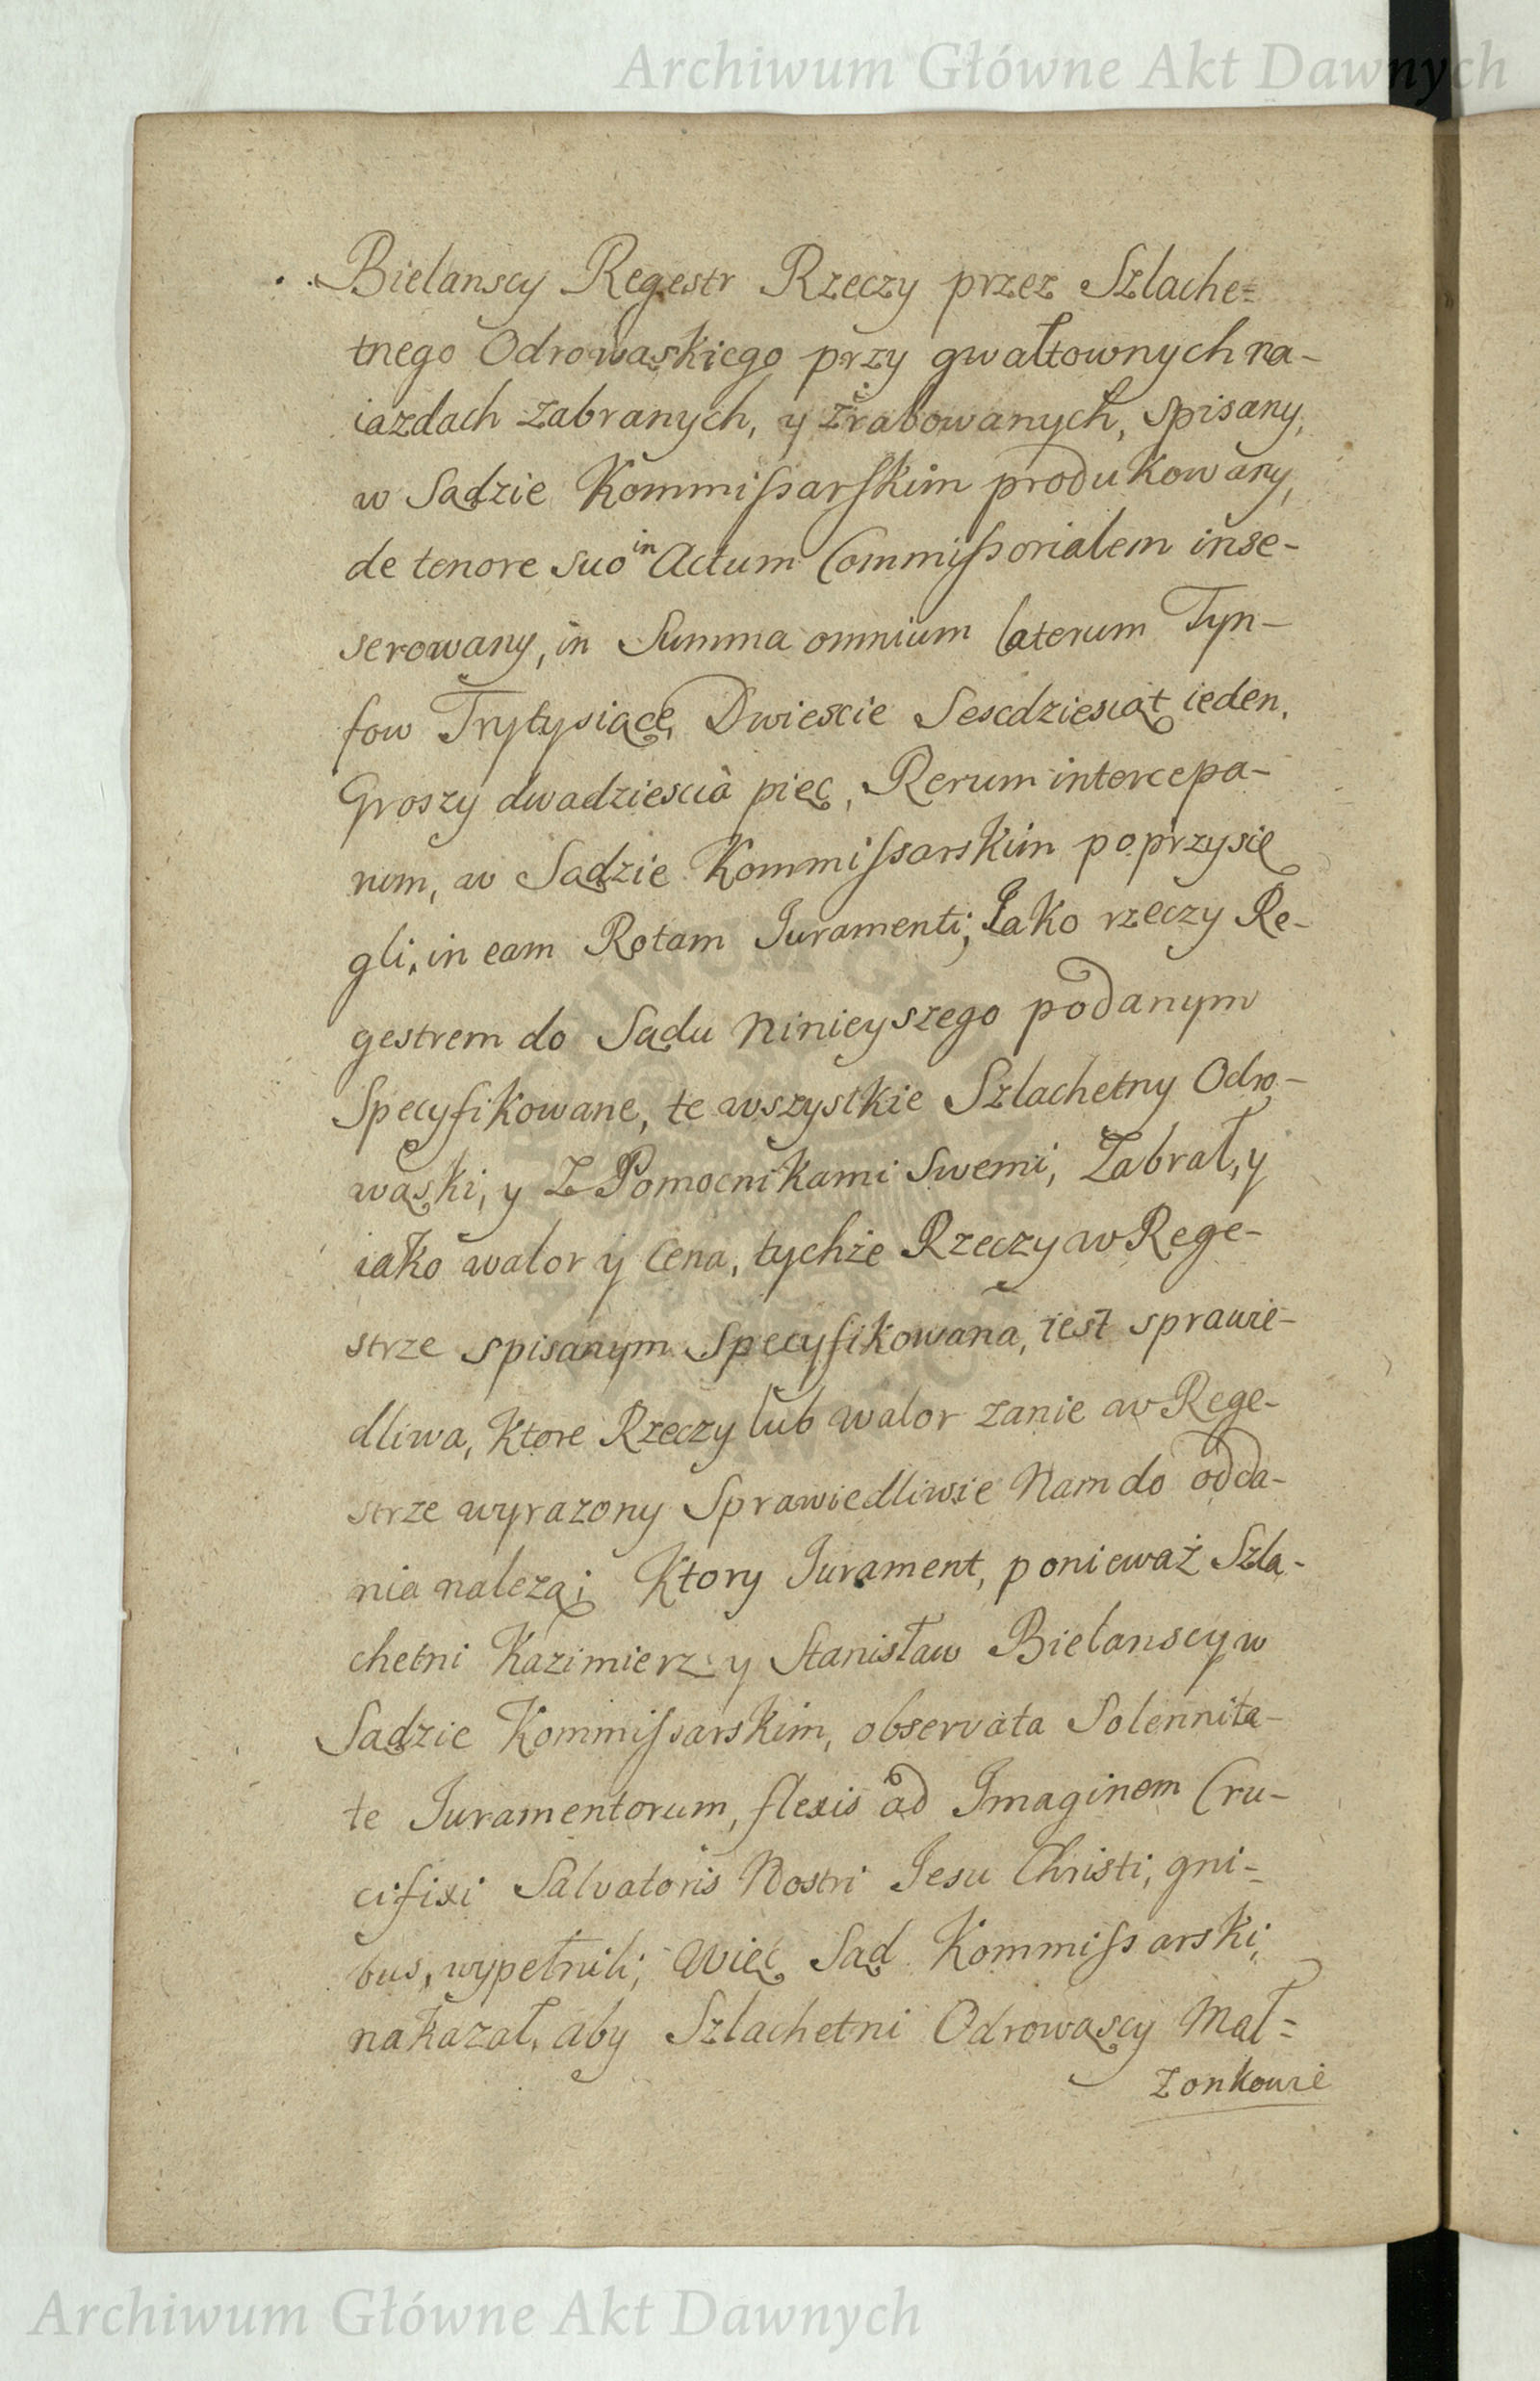 Archiwum Główne Akt Dawnych
Bielanscy Regestr Rzeczy przez Szlache=
tnego Odrowąskiego przy gwałtownych na-
iazdach zabranych, y zrabowanych, spisany,
w Sądzie Kommissarskim produkowany,
de tenore suo in Actum Commissorialem inse-
serowany, in Summa omnium laterum Tyn-
fow Trzytysiące Dwiescie Sescdziesiąt ieden,
Groszy dwadziescia pięc, Rerum intercepa-
rum, w Sądzie Kommissarskim poprzysię
gli, in eam Rotam Juramenti; Jako rzeczy Re-
gestrem do Sądu ninieyszego podanym
Specyfikowane, te wszystkie Szlachetny Odro-
wąski, y z Pomocnikami Swemi, Zabrał, y
iako walor y cena, tychże Rzeczy w Rege-
strze spisanym Specyfikowana, iest sprawie-
dliwa, Ktore Rzeczy lub walor zanie w Rege-
strze wyrazony Sprawiedliwie Nam do odda-
nia nalezą; Ktory Jurament, ponieważ Szla-
chetni Kazimierz y Stanisław Bielanscy w
Sądzie Kommissarskim, observata Solennita-
te Juramentorum, flexis ad Imaginem Cru-
cifixi Salvatoris Nostri Jesu Christi, gni-
bus, wypełnili; Więc Sąd Kommissarski,
nakazał, aby Szlachetni Odrowąscy Mał=
zonkowie
Archiwum Główne Akt Dawnych